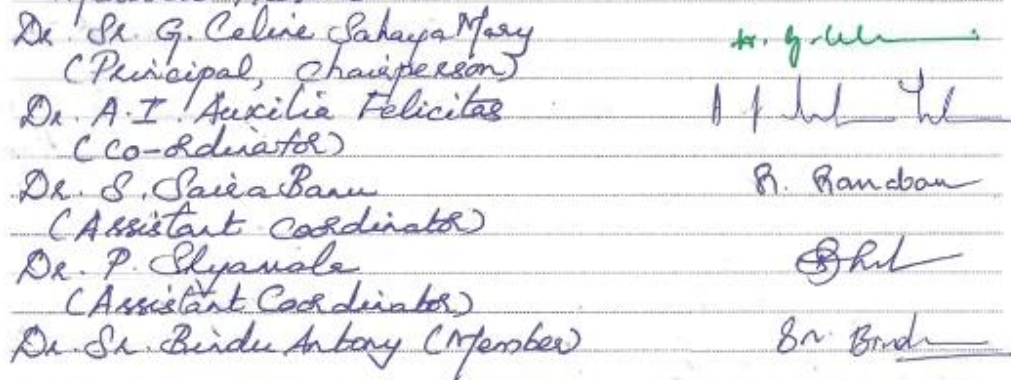 Dr. Sr. G. Celine Sahaya Mary
(Principal, Chairperson)
Dr. A. I. Auxilia Felicitas
(Co-ordinator)
Dr. S. Saira Banu R.
(Assistant Coordinator)
Dr. P. Shyamala
(Assistant Coordinator)
Dr. Sr. Bindu Antony (Member) Sr. Bindu